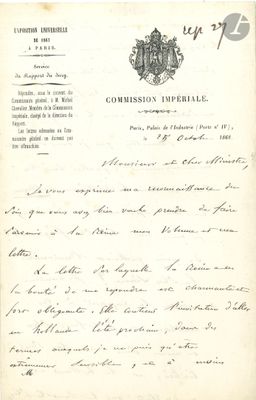 EXPOSITION UNIVERSELLE
DE 1867
A PARIS.
Service
du Rapport du Jury.
Répondre, sous le couvert du
Commissaire général, à M. Michel
Chevalier, Membre de la Commission
Impériale, chargé de la direction du
Rapport.
Les lettres adressées au Com-
missaire général ne doivent pas
être affranchies.
rep 27
COMMISSION IMPÉRIALE.
Paris, Palais de l'Industrie (Porte nº IV),
le Octobre 186
Monsieur et cher Ministre,
Je vous exprime ma reconnaissance du
soin que vous avez bien voulu prendre de faire
parvenir à la Reine mon volume et ma
lettre.
La lettre par laquelle la Reine a eu
la bonté de me répondre est charmante et
fort obligeante. Elle contient l'invitation d'aller
en hollande l'été prochain, dans des
termes auxquels je ne puis qu'être
extrêmement sensible, et à moins
M